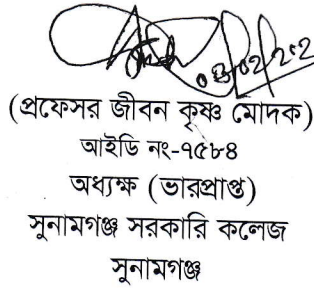 (প্রফেসর জীবন কৃষ্ণ মোদক)
আইডি নং-৭৫৮৪
অধ্যক্ষ (ভারপ্রাপ্ত)
সুনামগঞ্জ সরকারি কলেজ
সুনামগঞ্জ